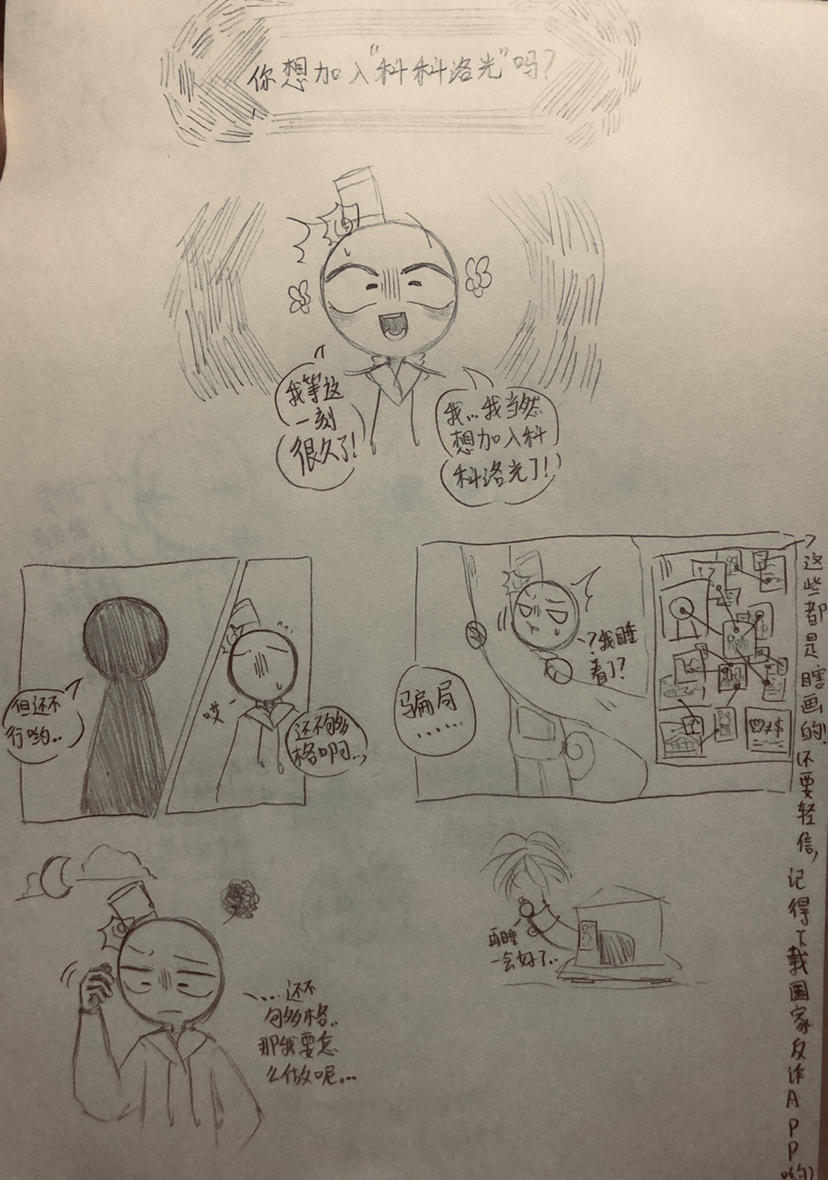 你想加入“科科洛光”吗？
我等这
一刻
很久了！
我…我当然
想加入科
科洛光了！
但还不
行哟..
哎
还不够
格啊...
骗局
……
？我睡
着了？
这些都是瞎画的！不要轻信，记得下载国家反诈APP哟
…还不
够格..
那我要怎
么做呢…
再睡
一会好了..